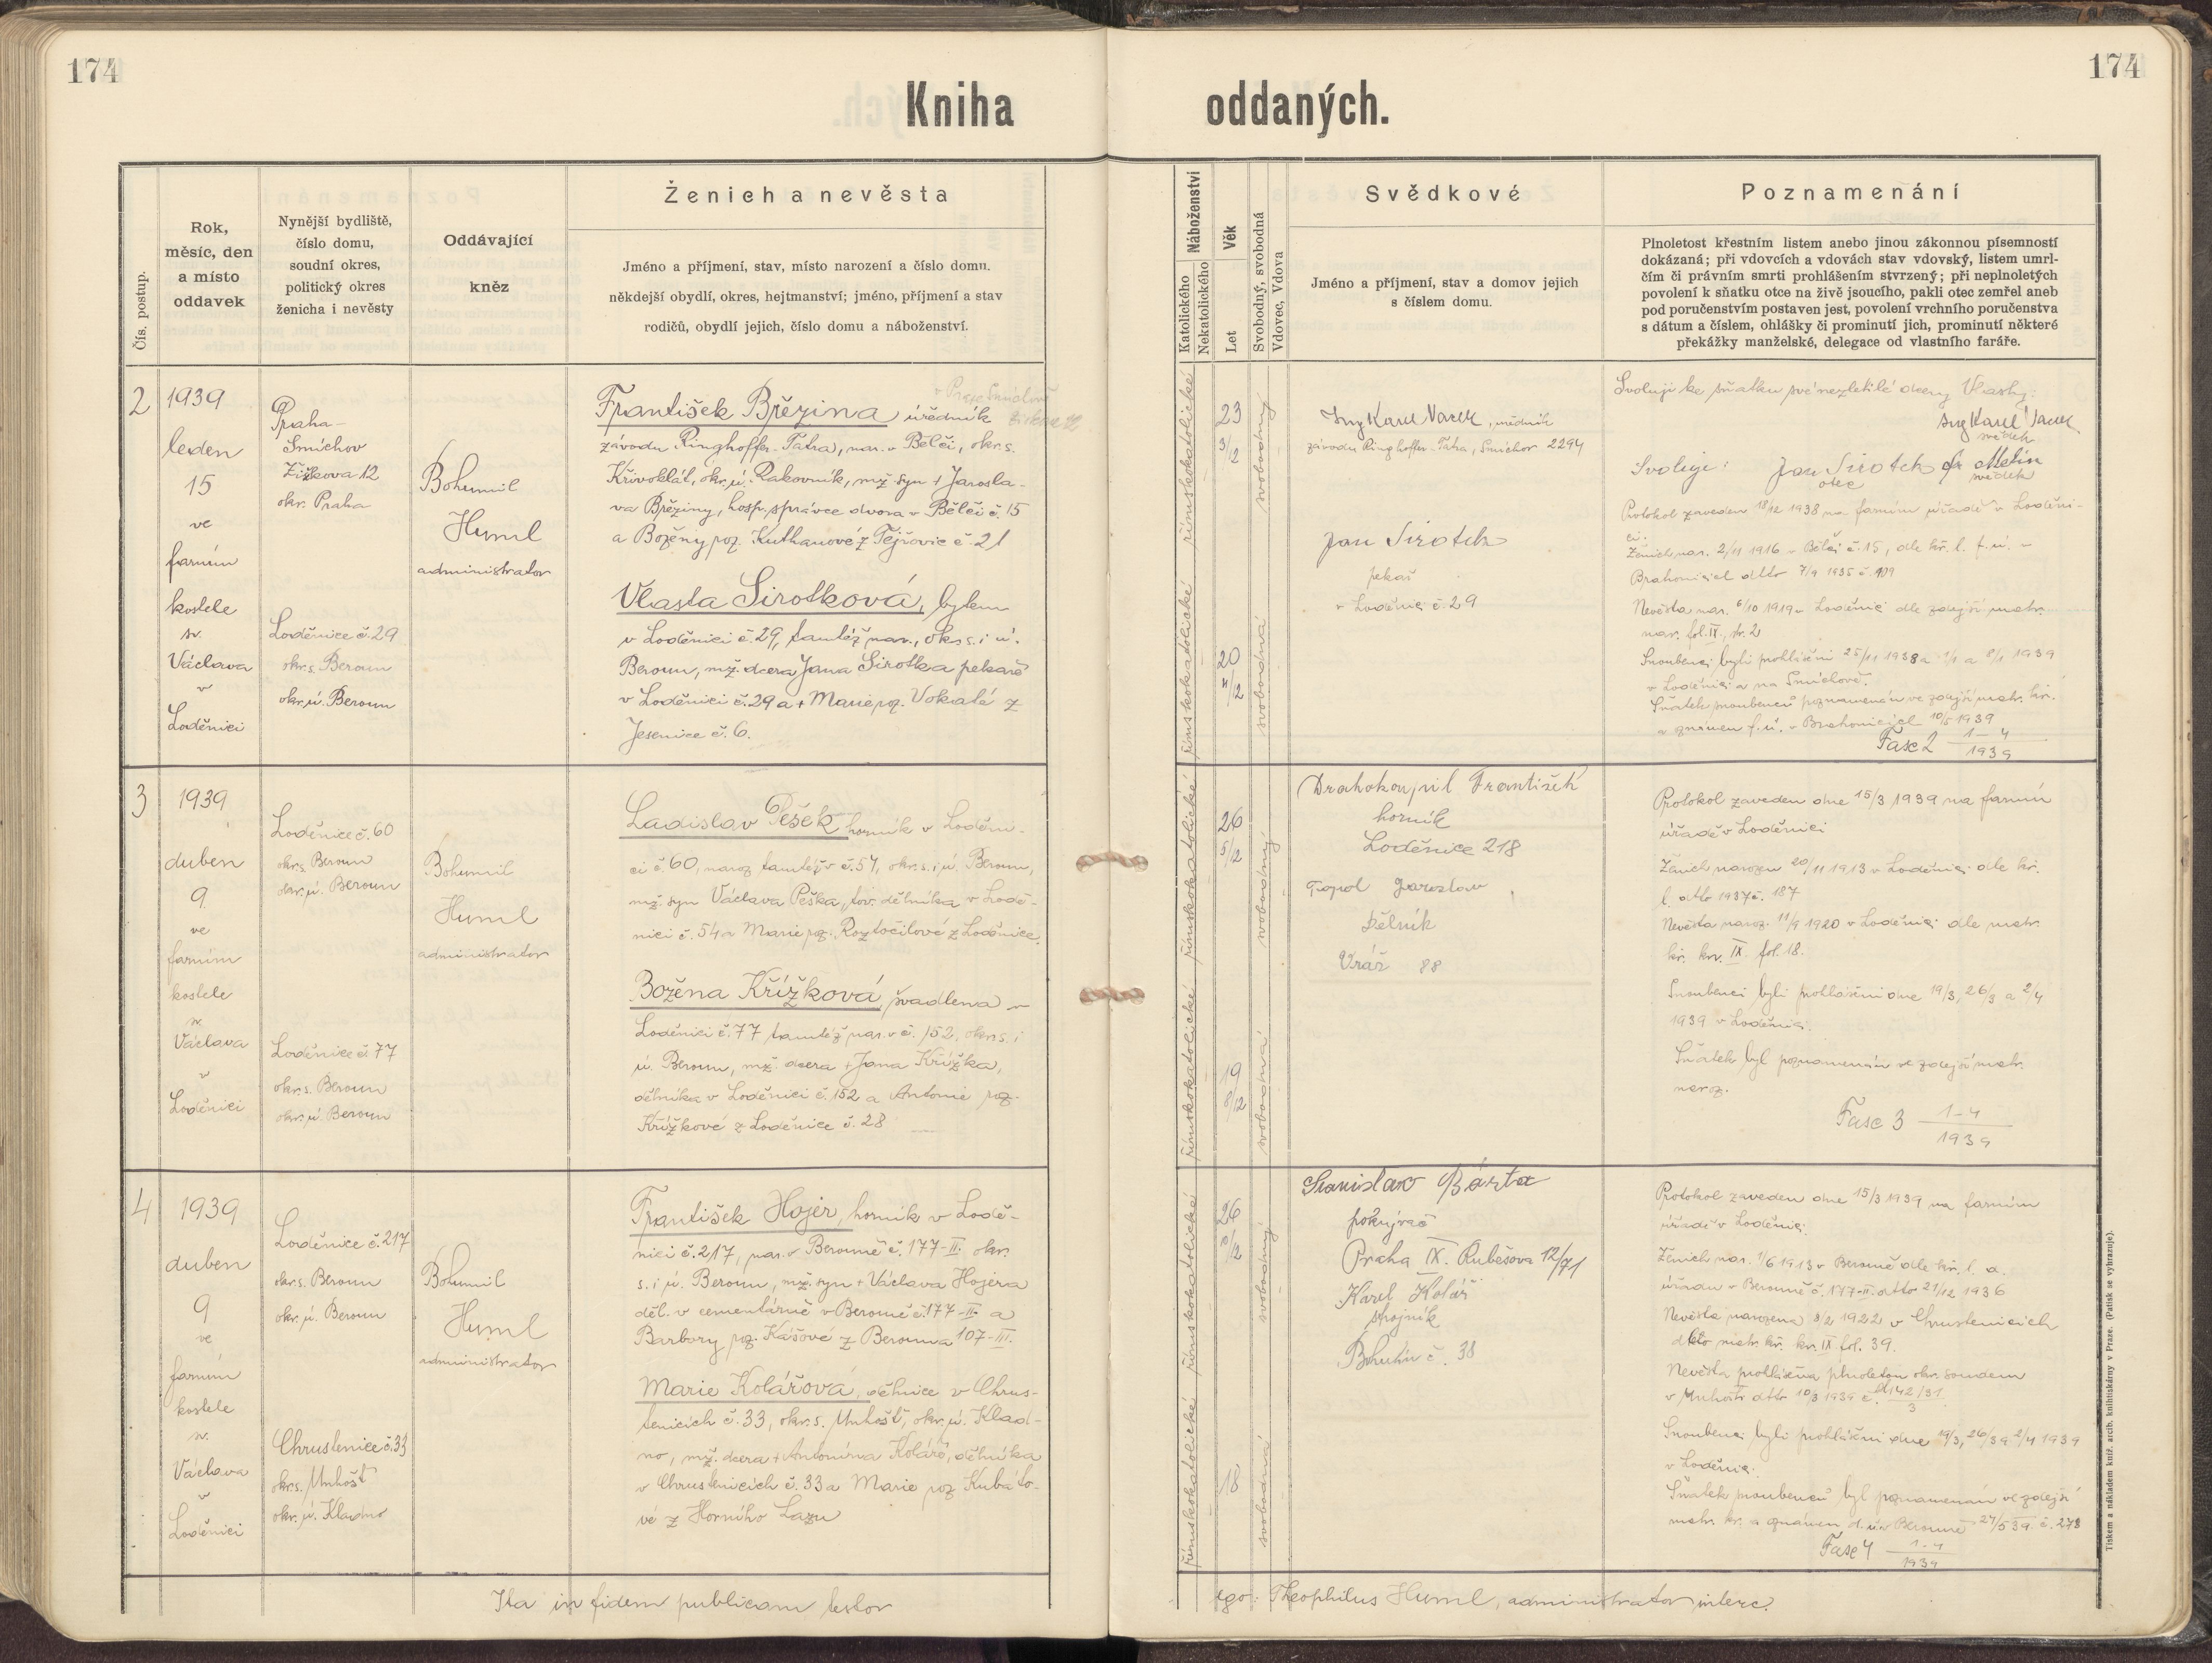 174
174
Kniha oddaných.
Čís. postup.
Rok,
měsíc, den
a místo
oddavek
Nynější bydliště,
číslo domu,
soudní okres,
politický okres
ženicha i nevěsty
Oddávající
kněz
Ženich a nevěsta
Jméno a příjmení, stav, místo narození a číslo domu.
někdejší obydlí, okres, hejtmanství; jméno, příjmení a stav
rodičů, obydlí jejich, číslo domu a náboženství.
Náboženství
Katolického
Nekatolického
Věk
Let
Svobodný, svobodná
Vdovec, Vdova
Svědkové
Jméno a příjmení, stav a domov jejich
s číslem domu.
Poznamenání
Plnoletost křestním listem anebo jinou zákonnou písemností
dokázaná; při vdovcích a vdovách stav vdovský, listem umrl-
čím či právním smrti prohlášením stvrzený; při neplnoletých
povolení k sňatku otce na živě jsoucího, pakli otec zemřel aneb
pod poručenstvím postaven jest, povolení vrchního poručenstva
s dátum a číslem, ohlášky či prominutí jich, prominutí některé
překážky manželské, delegace od vlastního faráře.
2
1939
leden
15
ve
farním
kostele
sv.
Václava
v
Loděnici
Praha-
Smíchov
Žižkova 12
okr. Praha
Loděnice č. 29
okr. s. Beroun
okr. ú. Beroun
Bohumil
Huml
administrator
František Březina, úředník
závodu Ringhoffer-Tatra, nar. v Bělči, okr. s.
Křivoklát, okr. ú. Rakovník, mž. syn + Jarosla-
va Březiny, hosp. správce dvora v Bělči č. 15
a Boženy roz. Kuthanové z Tejřovic č. 21
Vlasta Sirotková, bytem
v Loděnici č. 29, tamtéž nar., okr. s. i ú.
Beroun, mž. dcera Jana Sirotka pekaře
v Loděnici č. 29 a + Marie roz. Vokaté z
Jesenice č. 6.
římskokatolické
římskokatolické
23
3/12
20
svobodný
svobodná
Ing Karel Vacek, úředník
závodu Ringhoffer-Tatra, Smíchov 2294
Jan Sirotek
pekař
v Loděnici č. 29
Svoluji ke sňatku své nezletilé dcery Vlasty:
Ing Karel Vacek
svědek
Svoluji: Jan Sirotek
otec
svědek
Protokol zaveden 18/12 1938 na farním úřadě v Loděni-
ci.
Ženich nar. 2/11 1916 v Bělči č. 15, dle kř. l. f. ú. v
Nevěsta nar. 6/10 1919 v Loděnici dle zdejší matr.
nar. fol. IX, str. 2
Snoubenci byli prohlášeni 25/11 1938 a 1/1 a 8/1 1939
v Loděnici a na Smíchově.
Sňatek snoubenců poznamenán ve zdejší matr. kř.
Fasc 2 1-4
1939
3
1939
duben
9
ve
farním
kostele
sv.
Václava
v
Loděnici
Loděnice č. 60
okr. s. Beroun
okr. ú. Beroun
Loděnice č. 77
okr. s. Beroun
okr. ú. Beroun
Bohumil
Huml
administrator
Ladislav Pešek horník v Loděni-
ci č. 60, naroz. tamtéž v č. 54, okr. s. i ú. Beroun,
mž. syn Václava Peška, tov. dělníka v Lodě-
nici č. 54 a Marie roz. Roztočilové z Loděnice.
Božena Křížková, švadlena v
Loděnici č. 77 tamtéž nar. v č. 152, okr. s. i
ú. Beroun, mž. dcera + Jana Křížka,
dělníka v Loděnici č. 152 a Antonie roz.
Křížkové z Loděnice č. 28
římskokatolické
římskokatolické
26
5/12
19
8/12
svobodný
svobodná
Drahokoupil František
horník
Loděnice 218
Topol Jaroslav
dělník
Vráž 88
Protokol zaveden dne 15/3 1939 na farním
úřadě v Loděnici
Ženich narozen 20/11 1913 v Loděnici dle kř.
l. dtto 1937 č. 187
Nevěsta naroz. 11/9 1920 v Loděnici dle matr.
kř. kn. IX. fol. 18.
Snoubenci byli prohlášeni dne 19/3, 26/3 a 2/4
1939 v Loděnici.
Sňatek byl poznamenán ve zdejší matr.
naroz.
Fasc 3 1-4
1939
4
1939
duben
9
ve
farním
kostele
sv.
Václava
v
Loděnici
Loděnice č. 217
okr. s. Beroun
okr. ú. Beroun
Chrustenice č. 33
okr. s. Unhošť
okr. ú. Kladno
Bohumil
Huml
administrator
František Hojer, horník v Lodě-
nici č. 217, nar. v Berouně č. 177-II. okr.
s. i ú. Beroun, mž. syn + Václava Hojera
děl. v cementárně v Berouně č. 177-II. a
Barbory roz. Kášové z Berouna 107-III.
Marie Kolářová, dělnice v Chrus-
tenicích č. 33, okr. s. Unhošť, okr. ú. Klad-
no, mž. dcera + Antonína Koláře, dělníka
v Chrustenicích č. 33 a Marie roz. Kubáto-
vé z Horního Lazu
římskokatolické
římskokatolické
26
18
svobodný
svobodná
Stanislav Bárta
pokrývač
Praha IX. Rubešova 12/71
Karel Kolář
strojník
Bohutín č. 38
Protokol zaveden dne 15/3 1939 na farním
úřadě v Loděnici.
Ženich nar. 1/6 1913 v Berouně dle kř. l. d.
úřadu v Berouně č. 177-II. dtto 21/12 1936
Nevěsta narozena 8/2 1922 v Chrustenicích
dtto matr. kř. kn. IX fol. 39.
Nevěsta prohlášena plnoletou okr. soudem
v Unhošti dtto 10/3 1939
Snoubenci byli prohlášeni dne 19/3, 26/3 a 2/4 1939
v Loděnici.
Sňatek snoubenců byl poznamenán ve zdejší
matr. kř. a oznámen d. ú. v Berouně 24/5 39. č. 278
Fasc 4 1-4
1939
Ita in fidem publicam testor
ego: Theophilus Huml, administrator interc.
Tiskem a nákladem kníž. arcib. knihtiskárny v Praze. (Patisk se vyhrazuje).